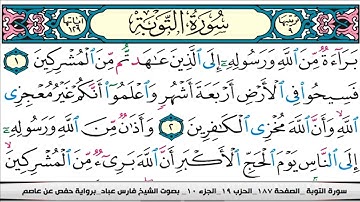 ترتيبها ٩ سُورَةُ التَّوْبَةِ آياتها ١٢٩
بَرَاءَةٌ مِّنَ اللَّهِ وَرَسُولِهِ إِلَى الَّذِينَ عَاهَدتُّم مِّنَ الْمُشْرِكِينَ ١
فَسِيحُوا فِي الْأَرْضِ أَرْبَعَةَ أَشْهُرٍ وَاعْلَمُوا أَنَّكُمْ غَيْرُ مُعْجِزِي
اللَّهِ وَأَنَّ اللَّهَ مُخْزِي الْكَافِرِينَ ٢ وَأَذَانٌ مِّنَ اللَّهِ وَرَسُولِهِ
إِلَى النَّاسِ يَوْمَ الْحَجِّ الْأَكْبَرِ أَنَّ اللَّهَ بَرِيءٌ مِّنَ الْمُشْرِكِينَ
سورة التوبة _الصفحة ١٨٧ _الحزب ١٩ _الجزء ١٠ _ بصوت الشيخ فارس عباد_برواية حفص عن عاصم